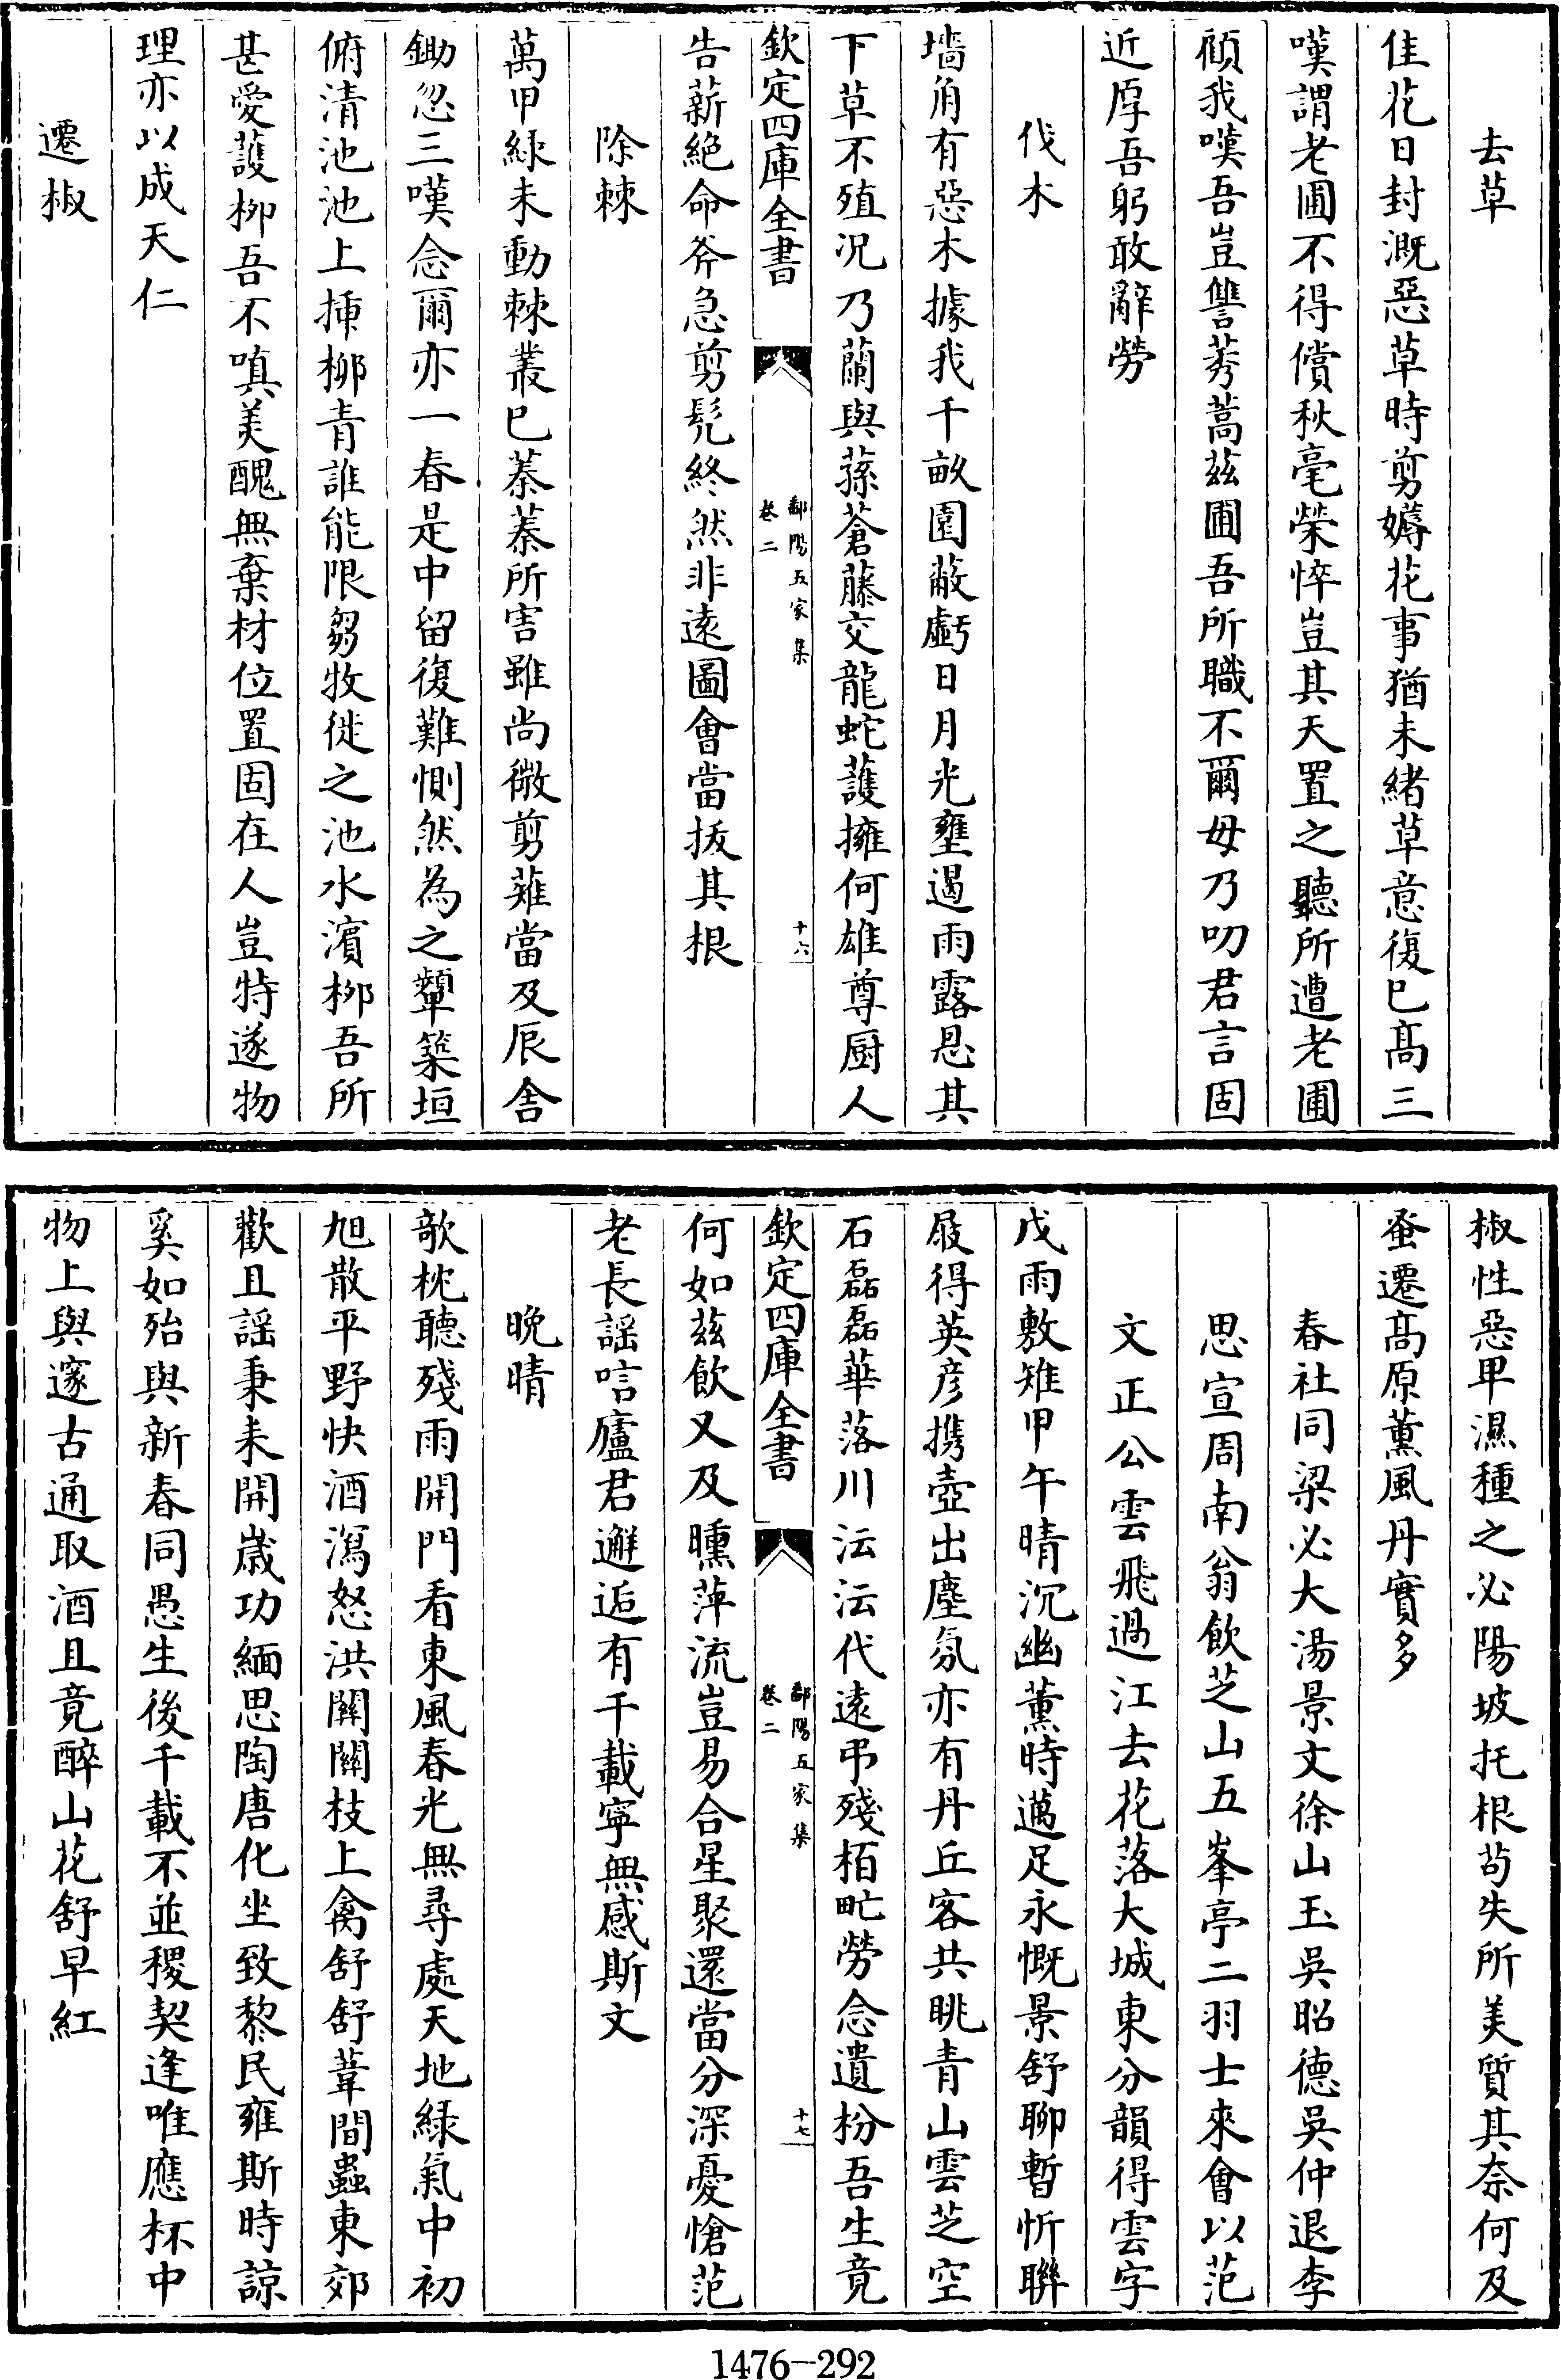 去草
佳花日封溉惡草時剪媷花事猶未緒草意復已髙三
嘆謂老圃不得償秋毫榮悴豈其天置之聽所遭老圃
顧我嘆吾豈讐莠蒿兹圃吾所職不爾毋乃叨君言固
近厚吾躬敢辭勞
伐木
墻角有惡木據我千畝園蔽虧日月光壅遏雨露恩其
下草不殖况乃蘭與蓀蒼藤交龍蛇護擁何雄尊厨人
欽定四庫全書
鄱陽五家集
卷二
十六
告薪絶命斧急剪髠終然非逺圖會當拔其根
除棘
萬甲緑未動棘叢已蓁蓁所害雖尚微剪薙當及辰舍
鋤忽三嘆念爾亦一春是中留復難惻然為之顰築垣
俯清池池上揷栁青誰能限芻牧徙之池水濵栁吾所
甚愛護栁吾不嗔美醜無棄材位置固在人豈特遂物
理亦以成天仁
遷椒
椒性惡卑濕種之必陽坡托根茍失所美質其奈何及
蚤遷髙原薫風丹實多
春社同梁必大湯景文徐山玉吳昭德吳仲退李
思宣周南翁飲芝山五峯亭二羽士來會以范
文正公雲飛過江去花落大城東分韻得雲字
戊雨敷雉甲午晴沉幽薰時邁足永慨景舒聊暫忻聨
屐得英彦携壺出塵氛亦有丹丘客共眺青山雲芝空
石磊磊華落川沄沄代逺弔殘栢甿勞念遺枌吾生竟
欽定四庫全書
鄱陽五家集
卷二
十七
何如兹飲又及曛萍流豈易合星聚還當分深憂愴范
老長謡唁廬君邂逅有千載寧無感斯文
晩晴
欹枕聽殘雨開門看東風春光無尋處天地緑氣中初
旭散平野快酒瀉怒洪關關枝上禽舒舒葦間蟲東郊
歡且謡秉耒開嵗功緬思陶唐化坐致黎民雍斯時諒
奚如殆與新春同愚生後千載不並稷契逢唯應杯中
物上與邃古通取酒且竟醉山花舒早紅
1476-292